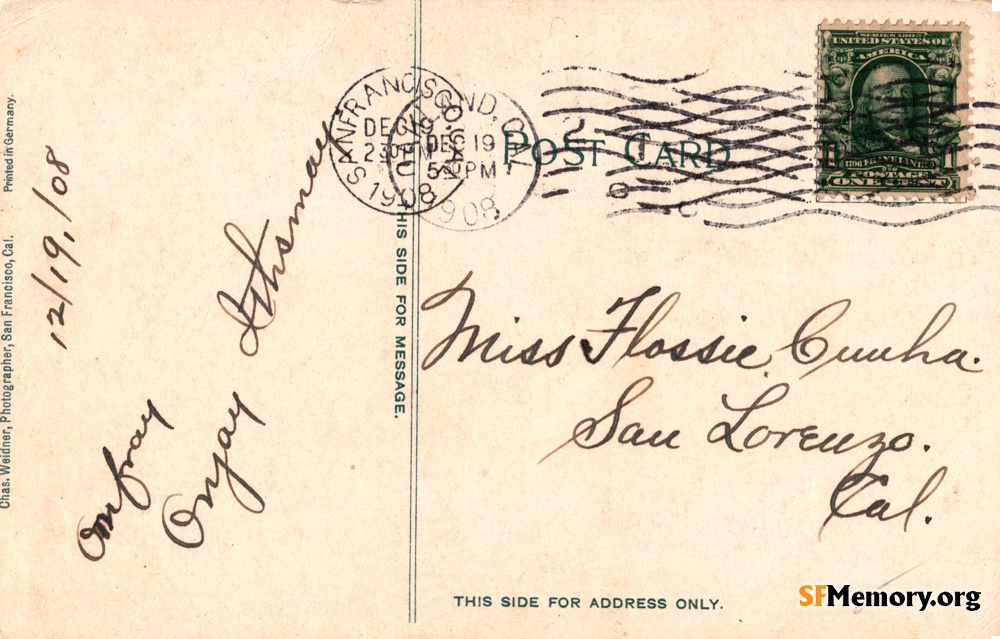 Chas. Weidner, Photographer, San Francisco, Cal. Printed in Germany.
12/19,/08
THIS SIDE FOR MESSAGE.
SAN FRANCISCO, CAL.
DEC 19
230 PM
1908
DEC 19
5 PM
1908
POST CARD
SERIES 1902
UNITED STATES OF
AMERICA
FRANKLIN
POSTAGE
1 1
ONE CENT
Miss Flossie Cunha.
San Lorenzo.
Cal.
THIS SIDE FOR ADDRESS ONLY.
SFMemory.org